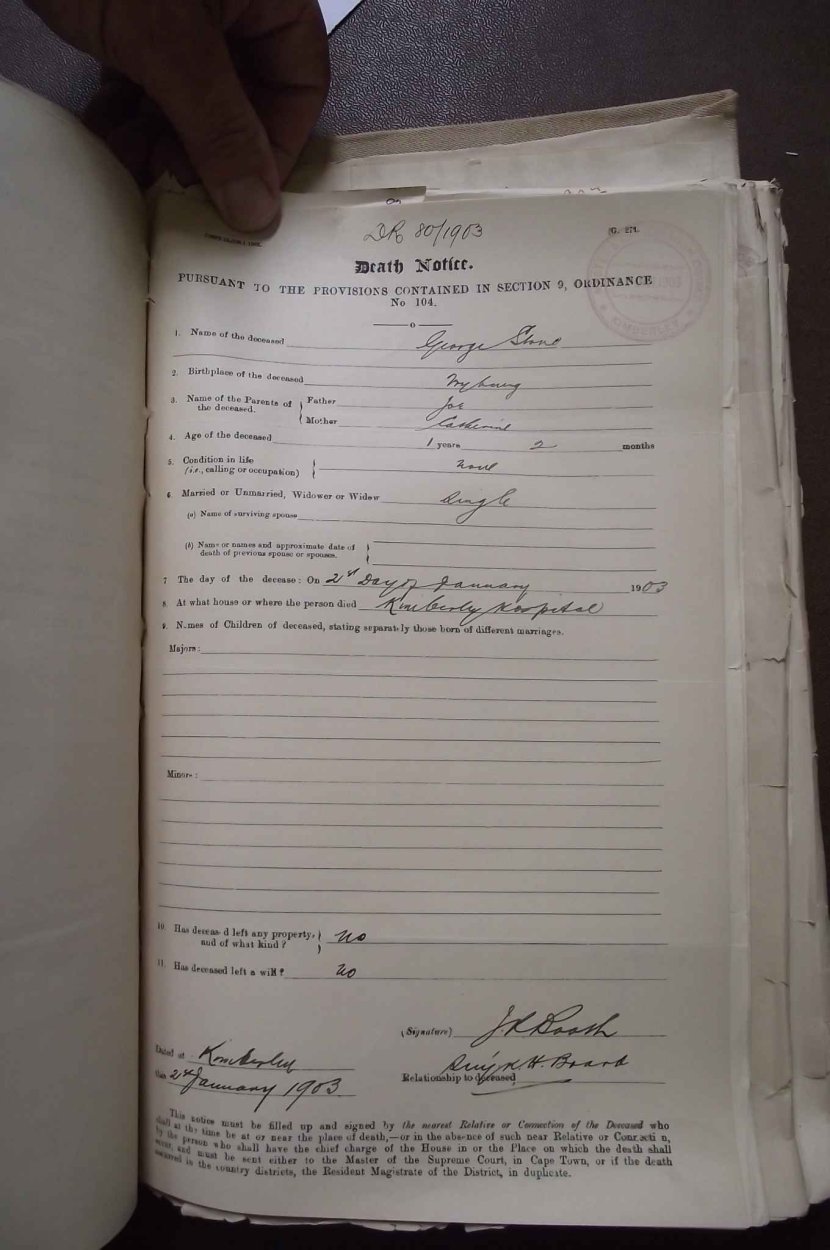 DR 80/1903
G. 271.
Death Notice.
PURSUANT TO THE PROVISIONS CONTAINED IN SECTION 9, ORDINANCE
No 104.
1. Name of the deceased George Stone
2. Birthplace of the deceased Wyburg
3. Name of the Parents of the deceased. Father Joe
Mother Catherine
4. Age of the deceased 1 years 2 months
5. Condition in life (i.e., calling or occupation) none
6. Married or Unmarried, Widower or Widow Single
(a) Name of surviving spouse
(b) Name or names and approximate date of
death of previous spouse or spouses.
7 The day of the decease: On 2nd Day of January 1903
8. At what house or where the person died Kimberly Hospital
9. Names of Children of deceased, stating separately those born of different marriages.
Majors:
Minors:
10. Has deceased left any property, and of what kind? no
11. Has deceased left a will? no
(Signature) Booth
Dated at Kimberley
H. Board
Relationship to deceased
this 2nd January 1903
This notice must be filled up and signed by the nearest Relative or Connection of the Deceased who
shall at the time be at or near the place of death,—or in the absence of such near Relative or Connection,
by the person who shall have the chief charge of the House in or the Place on which the death shall
occur, and must be sent either to the Master of the Supreme Court, in Cape Town, or if the death
occurred in the country districts, the Resident Magistrate of the District, in duplicate.